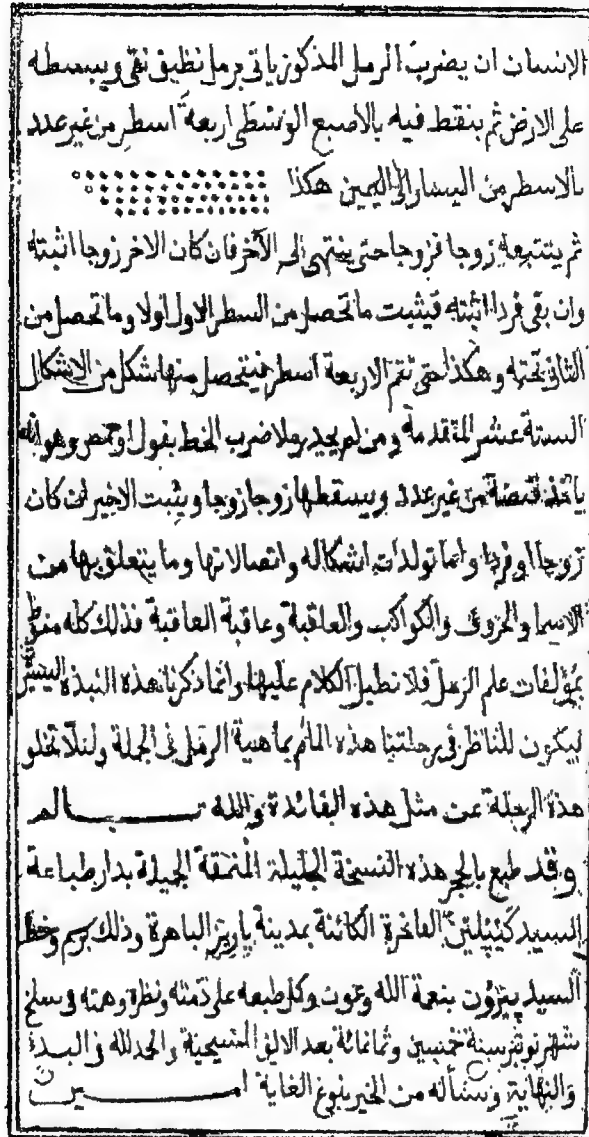 الانسان ان يضرب الرمل المذكور ياتى برمل نظيف نقى ويبسطه
على الارض ثم ينقط فيه بالاصبع الوسطى اربعة اسطر من غير عدد
بالاسطر من اليسار الى اليمين هكذا
ثم يتتبعه زوجا فزوجا حتى ينتهى الى الآخر فان كان الاخر زوجا اثبته
وان بقى فردا اثبته فيثبت ما تحصل من السطر الاول اولا وما تحصل من
الثانى تحته وهكذا حتى تتم الاربعة اسطر فيتحصل منها شكل من الاشكال
الستة عشر المتقدمة ومن لم يجد رملا ضرب الخط بفول او حمص وهو انه
ياخذ قبضة من غير عدد ويسقطها زوجا زوجا ويثبت الاخير ان كان
زوجا او فردا واما تولدات اشكاله واتصالاتها وما يتعلق بها من
الاسما والحروف والكواكب والعاقبة وعاقبة العاقبة فذلك كله منوط
بمؤلفات علم الرمل فلا نطيل الكلام عليها وانما ذكرنا هذه النبذة اليسيرة
ليكون للناظر فى رحلتنا هذه المام بماهية الرمل فى الجملة ولئلا تخلو
هذه الرحلة عن مثل هذه الفائدة والله
وقد طبع بالحجر هذه النسخة الجليلة المنمقة الجميلة بدار طباعة
السيد كيپلين الفاخرة الكائنة بمدينة پاريز الباهرة وذلك برسم وخط
السيد پيرون بنعمة الله وعون وكل طبعه على ذمته ونظره وهمته فى سلخ
شهر نونبر سنة خمسين وثمانمائة بعد الالف المسيحية والحمد لله فى البدء
والنهاية ونسأله من الخير بلوغ الغاية امين